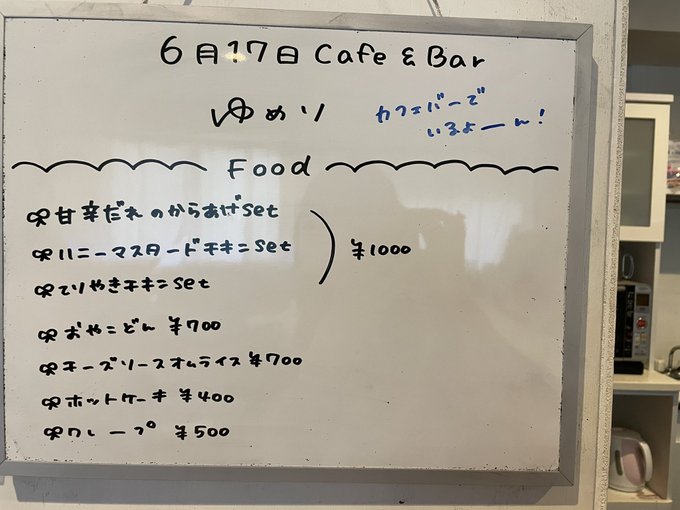 6月17日 Cafe & Bar
ゆめり
カフェバーで
いるよーん!
Food
甘辛だれのからあげset
ハニーマスタードチキンset
てりやきチキンset
¥1000
おやこどん ¥700
チーズソースオムライス ¥700
ホットケーキ ¥400
クレープ ¥500